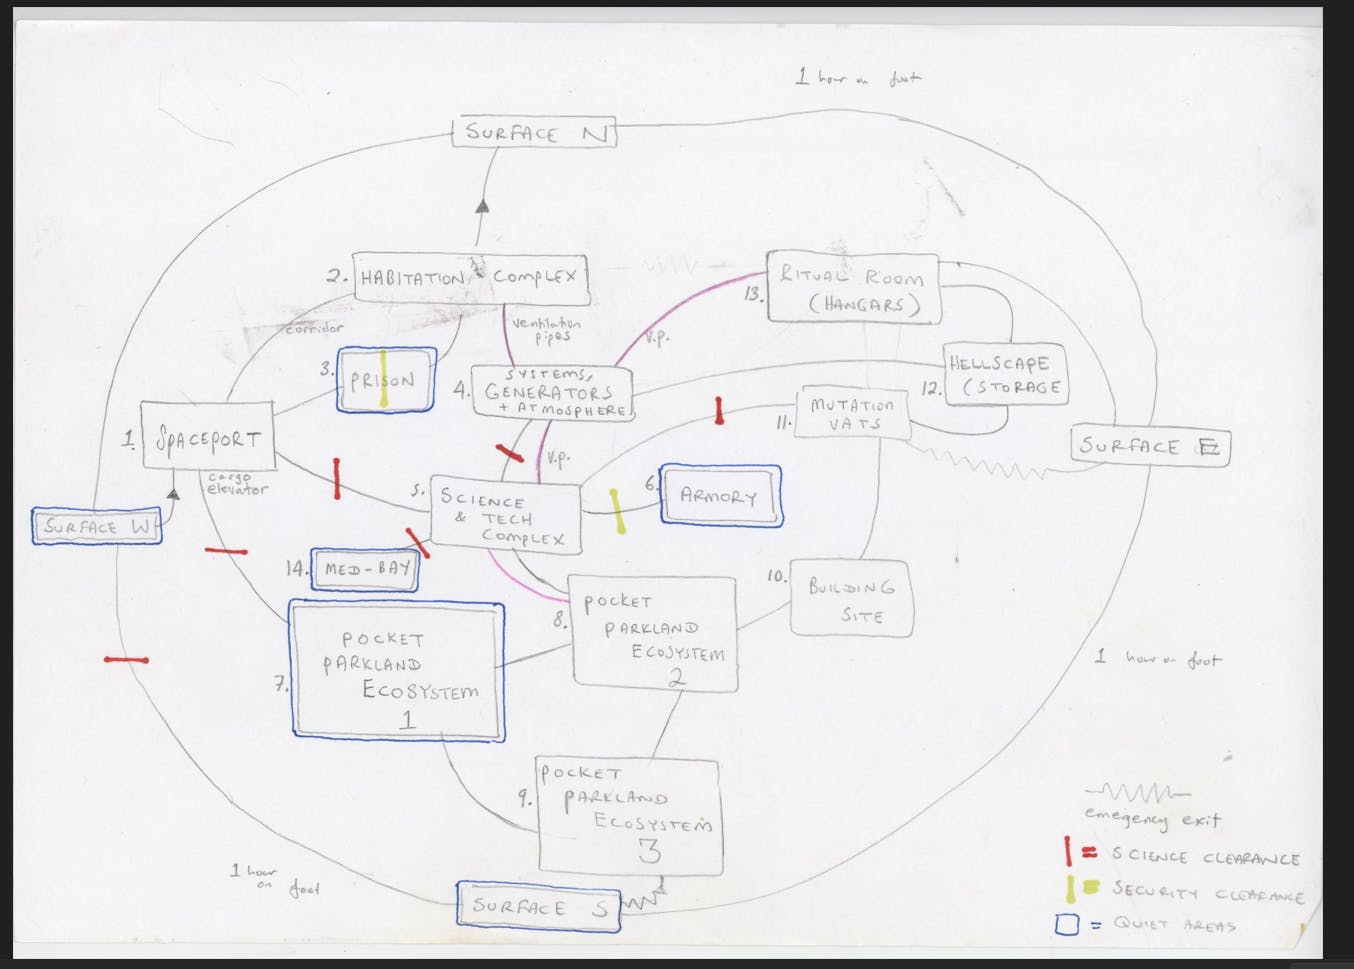 1 hour on foot
SURFACE N
2. HABITATION COMPLEX
RITUAL ROOM
13. (HANGARS)
corridor
ventilation
pipes
v.p.
3. PRISON
4. SYSTEMS,
GENERATORS
+ ATMOSPHERE
HELLSCAPE
12. (STORAGE
MUTATION
11. VATS
1. SPACEPORT
SURFACE E
v.p.
cargo
elevator
5. SCIENCE
& TECH
COMPLEX
6. ARMORY
SURFACE W
14. MED-BAY
10. BUILDING
SITE
8. POCKET
PARKLAND
ECOSYSTEM
2
7. POCKET
PARKLAND
ECOSYSTEM
1
1 hour on foot
9. POCKET
PARKLAND
ECOSYSTEM
3
emergency exit
= SCIENCE CLEARANCE
= SECURITY CLEARANCE
= QUIET AREAS
1 hour
on foot
SURFACE S